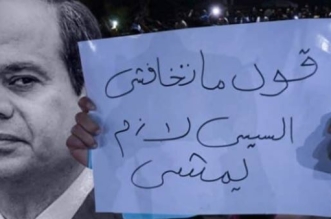 قول ماتخافشي
السيسى لازم
يمشى